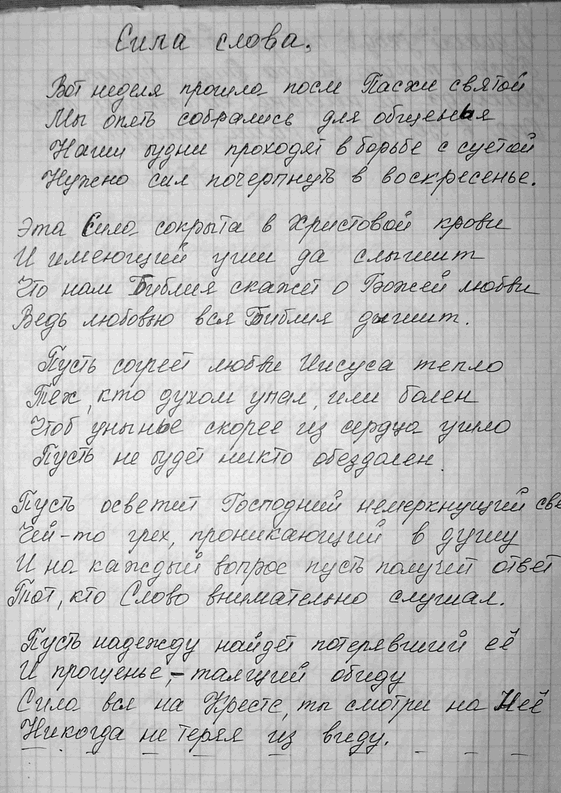 Сила слова.
Вот неделя прошла после Пасхи святой
Мы опять собрались для общенья
Наши будни проходят в борьбе с суетой
Нужно сил почерпнуть в воскресенье.
Эта Сила сокрыта в Христовой крови
И имеющий уши да слышит
Что нам Библия скажет о Божей любви
Ведь любовью вся Библия дышит.
Пусть согреет любви Иисуса тепло
Тех, кто духом упал, или болен
Чтоб унынье скорее из сердца ушло
Пусть не будет никто обездолен.
Пусть осветит Господний немеркнущий све
Чей-то грех, проникающий в душу
И на каждый вопрос пусть получит ответ
Тот, кто Слово внимательно слушал.
Пусть надежду найдёт потерявший её
И прощенье, - таящий обиду
Сила вся на Кресте, ты смотри на Неё
Никогда не теряя из виду.